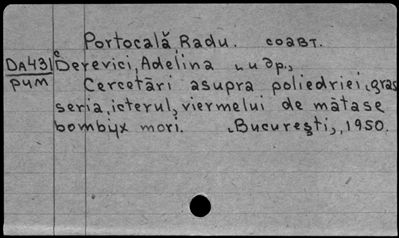 Portocală, Radu. соавт.
DA431 c Derevici, Adelina и др.,
рум Cercetări asupra poliedriei, gras
seria, icterul, viermelui de mătase
bombyx mori. București, 1950.